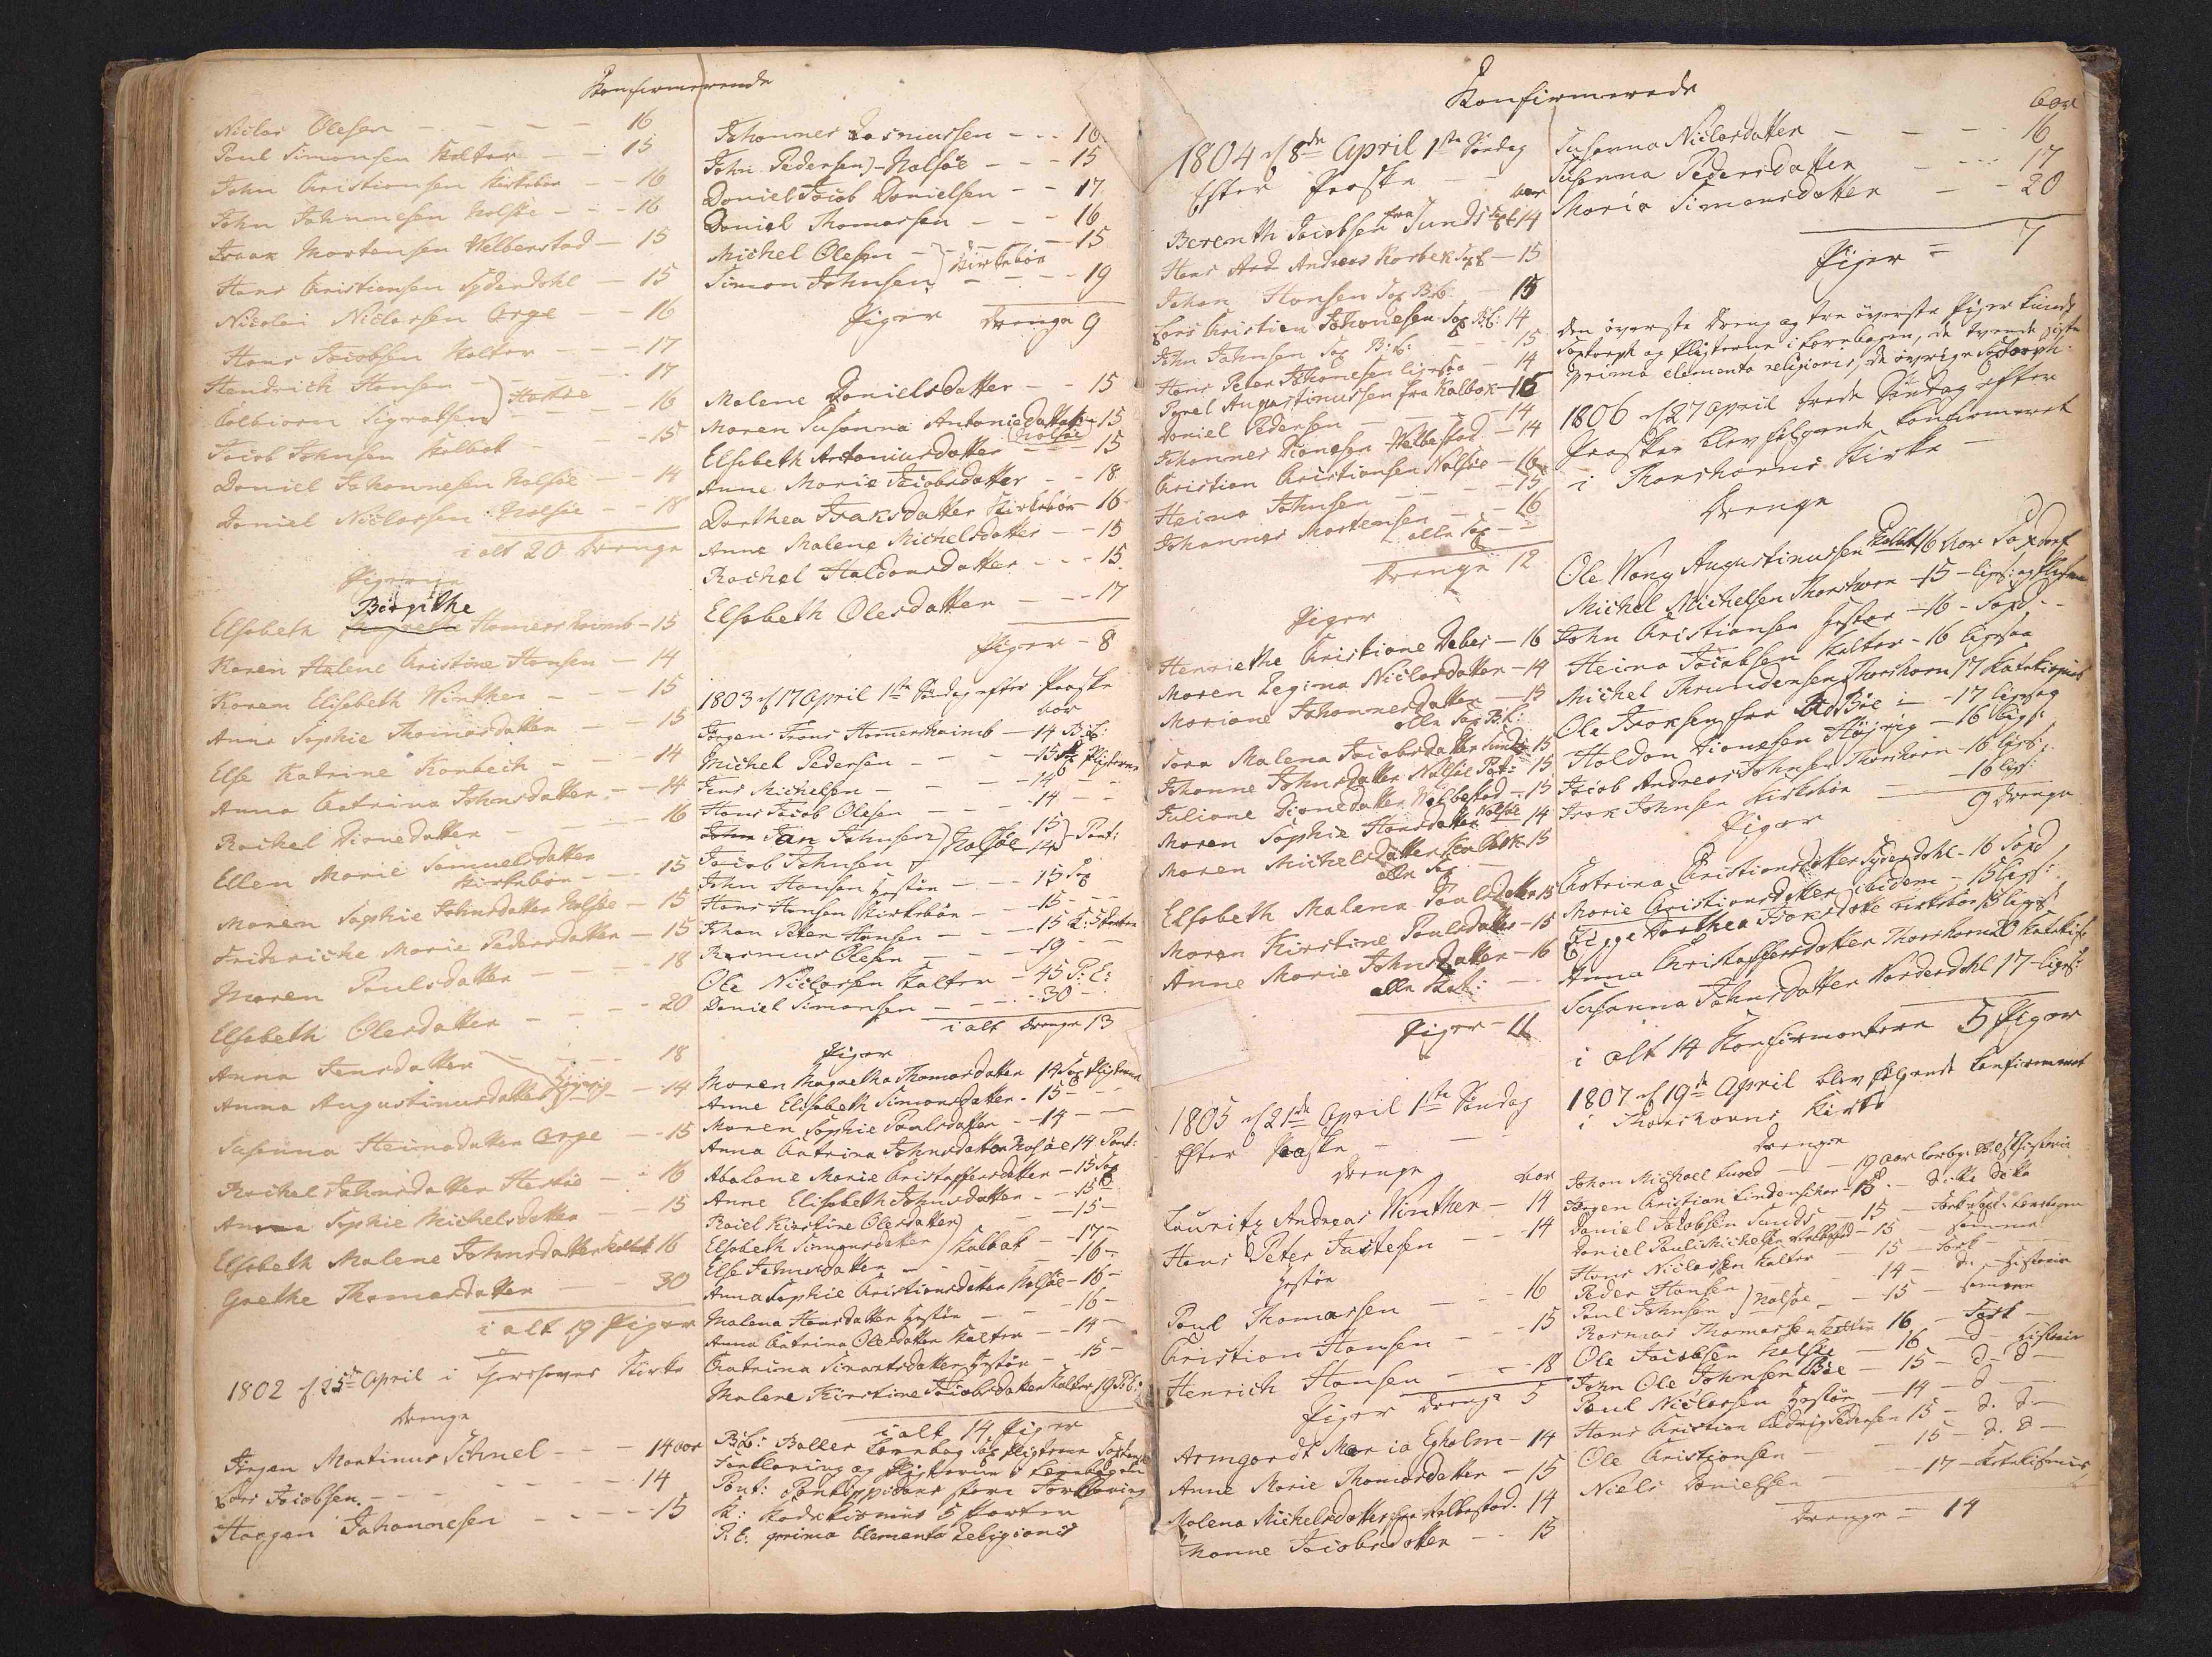 Konfirmerende
Niclas Olesen - - - 16
Poul Simonsen Kolter - - 15
John Christiansen Kirkebøe - 16
John Johannesen Nolsøe - - 16
Isaak Mortensen Welberstad - 15
Hans Christiansen Syderdahl - 15
Nicolai Niclassen Arge - - 16
Hans Jacobsen Kolter - - - 17
Hendrich Hansen - - - 17
Colbiorn Sigvatsen Hestøe - - 16
Jacob Johnsen Kolbak - - - 15
Daniel Johannesen Nolsøe - 14
Daniel Niclassen Nolsøe - - 18
i alt 20 Drenge
Pigerne
Birgithe
Elsebeth Hamershaimb - 15
Karen Malene Christine Hansen - 14
Karen Elisabeth Winther - - - 15
Anne Sophie Thomasdatter - - 15
Else Katrine Korbech - - - 14
Anna Catrina Johnsdatter - - 14
Rachel Dionedatter - - - 16
Ellen Marie Samuelsdatter
Kirkebøe - - - 15
Maren Sophie Johnsdatter Nolsøe - 15
Frideriche Marie Pedersdatter - 15
Maren Poulsdatter - - - 18
Elsebeth Olesdatter - - - 20
Anna Jensdatter - - - 18
Anna Augustinusdatter - 14
Susanna Heinesdatter Arge - - 15
Rachel Johnsdatter Hestøe - - 16
Anna Sophie Michelsdatter - - 15
Elsebeth Malene Johnsdatter Kolbak 16
Grethe Thomasdatter - - 30
i alt 19 Piger
1802 d 25de April i Thorshavns Kirke
Drenge
Jørgen Martinus Schnel - - - 14 aar
Lars Jacobsen - - - 14
Joegen Johannesen - - - 15
Johannes Rasmussen - - - 16
John Pedersen - Nolsøe - - - 15
Daniel Jacob Danielsen - - 17
Daniel Thomassen - - - 16
Michel Olesen - - - 15
Simon Johnsen Kirkebøe - - - 19
Drenge 9
Piger
Malene Danielsdatter - - 15
Maren Susanna Antoniedatter - 15
Elsebeth Antoniusdatter Nolsøe - - 15
Anne Marie Jacobsdatter - - 18
Dorthea Isaksdatter Kirkebøe - 16
Anne Malene Michelsdatter - - 15
Rachel Haldansdatter - - - 15
Elsebeth Olesdatter - - - 17
Piger - 8
1803 d 17 April 1ste Søndag efter Paaske
aar
Jørgen Frans Hamershaimb - 14 B.L:
Michel Pedersen - - - 15 Pligterne
Jens Michelsen - - - 14 - -
Hans Jacob Olesen - - - 14 - -
Jan Johnsen 15
Jacob Johnsen Nolsøe 14 - Pont:
John Hansen Hestøe - - - 15 Sax
Hans Hansen Kirkebøe - - - 15 - - -
Johan Peter Hansen - - - 15 K: 5 Parter
Rasmus Olesen - - - 19 - -
Ole Niclassen Kolter - 45 P: E:
Daniel Simonsen - - - 30 -
i alt Drenge 13
Piger
Maren Magretha Thomasdatter 14 Sax Pligterne
Anne Elisabeth Simonsdatter - 15 - - -
Maren Sophie Poulsdatter - - 14 - -
Anna Catrina Johnsdatter Nolsøe 14 Pont:
Abalone Marie Christoffersdatter - 15 Sax
Anne Elisabeth Johnsdatter - - 15 -
Rachel Kirstine Olesdatter - 15 -
Elsebeth Simonsdatter Kalbak - 17 -
Else Johnsdatter - - - 16 -
Anna Sophie Christiansdatter Nolsøe - 16 -
Malena Hansdatter Hestøe - - 16 -
Anna Catrina Olesdatter Kolter - - 14 -
Catrina Sivartsdatter Hestøe - - 15 -
Malene Kirstine Jacobsdatter Kolter 19 P.E:
i alt 14 Piger
B:L: Balles Lærebog Sax Pligterne Saxtorphs
Forklaring og Pligterne i Lærebogen
Pont: Pontoppidans store Forklaring
K: Katekismus 5 Parter
P: E: prima Elementa Religionis
Konfirmerede
1804 d 8de April 1ste Søndag
Efter Paaske - -
aar
Berenth Jacobsen fra Sund Sax 14
Hans And Andreas Korbek Sax - 15
Johan Hansen Sax B.L: 15
Lars Christian Johanesen Sax B:L: 14
John Johnsen Sax B:L: - - 15
Hans Peter Johanesen ligesaa - 14
Poul Augustinussen fra Kalbak - 16
Daniel Pedersen - - - 14
Johannes Dionesen Welbestad - 14
Christian Christiansen Nolsøe - 16
Heine Johnsen - - - 15
Johannes Mortensen - - 16
alle Sax
Drenge 12
Piger
Henriethe Christiane Debes - 16
Maren Regina Niclasdatter - 14
Mariane Johannesdatter - 15
alle Sax B.L:
Sara Malena Jacobsdatter Sund - 15
Johanne Johnsdatter Nolsøe Pont: 15
Juliane Dionedatter Welbestad - 15
Maren Sophie Hansdatter Nolsøe 14
Maren Michelsdatter Kalbak 15
alle Sax
Elsebeth Malena Poulsdatter 15
Maren Kirstine Poulsdatter - 15
Anne Marie Johnsdatter - 16
alle Kat: - -
Piger - 11
1805 d 21de April 1ste Søndag
Efter Paaske - - -
Drenge aar
Lauritz Andreas Winther - 14
Hans Peter Justesen - - 14
Hestøe
Poul Thomassen - - 16
Christian Hansen - - 15
Henrich Hansen - - - 18
Drenge 5
Piger
Armgardt Maria Egholm - 14
Anne Marie Thomasdatter - 15
Malena Michelsdatter fra Welbestad - 14
Hanne Jacobsdatter - - 15
aar
Susanna Niclasdatter - - - 16
Susanna Pedersdatter - - - 17
Maria Simonsdatter - - 20
Piger = 7
Den øverste Dreng og tre øverste Piger kunde
Saxtorph og Pligterne i Lærebogen, de tvende sidste
prima elementa religionis, de øvrige Saxtorph.
1806 d 27 April tredie Søndag efter
Paaske blev følgende konfirmeret
i Thorshavns Kirke -
Drenge
Ole Wang Augustinussen Kalbak 16 aar Saxtorf
Michel Michelsen Thorshavn - 15 - liges: og Pligterne
John Christiansen Hestøe - 16 - Saxt - -
Heine Jacobsen Kolter - 16 ligesaa
Michel Thrundensen Thorshavn 17 Katekismus
Ole Isaksen fra Bøe - 17 ligesaa
Haldan Dionesen Høyvig - 16 liges:
Jacob Andreas Johnsen Thorshavn - 16 liges:
Isak Johnsen Kirkebøe - 16 liges:
9 Drenge
Piger
Catrina Christiansdatter Syderdahl - 16 Saxt
Marie Christiansdatter ibidem - 15 liges:
Sigge Dorthea Isaksdatter Kirkebøe 15 liges:
Anna Christoffersdatter Thorshavn 20 Katekis:
Susanna Johnsdatter Norderdahl 17 - liges:
i alt 14 Konfirmantere 5 Piger
1807 d 19de April blev følgende konfirmeret
i Thorshavns Kirke
Drenge
Johan Michael Lund - - 19 aar Lærbg: Bibelhistorie
Jørgen Christian Lindenskov - 15 - Ditto Ditto
Daniel Jacobsen Sunds - 15
Daniel Paul Michelsen Welbestad - 15 - samme
Hans Niclassen Kolter - 15 - Saxt
Peder Hansen - 14 - d: Historie
Poul Johnsen Nolsøe - - 15 - samme
Rasmus Thomassen Kolter 16 - Saxt
Ole Jacobsen Nolsøe - 16 - d - Historie
John Ole Johnsen Bøe - 15 - d - d -
Poul Niclassen Hestøe - 14 - d -
Hans Christian Ludvig Pedersen 15 - d. d -
Ole Christiansen - 15 - d. d -
Niels Danielsen - - 17 - Katekismus
Drenge = 14